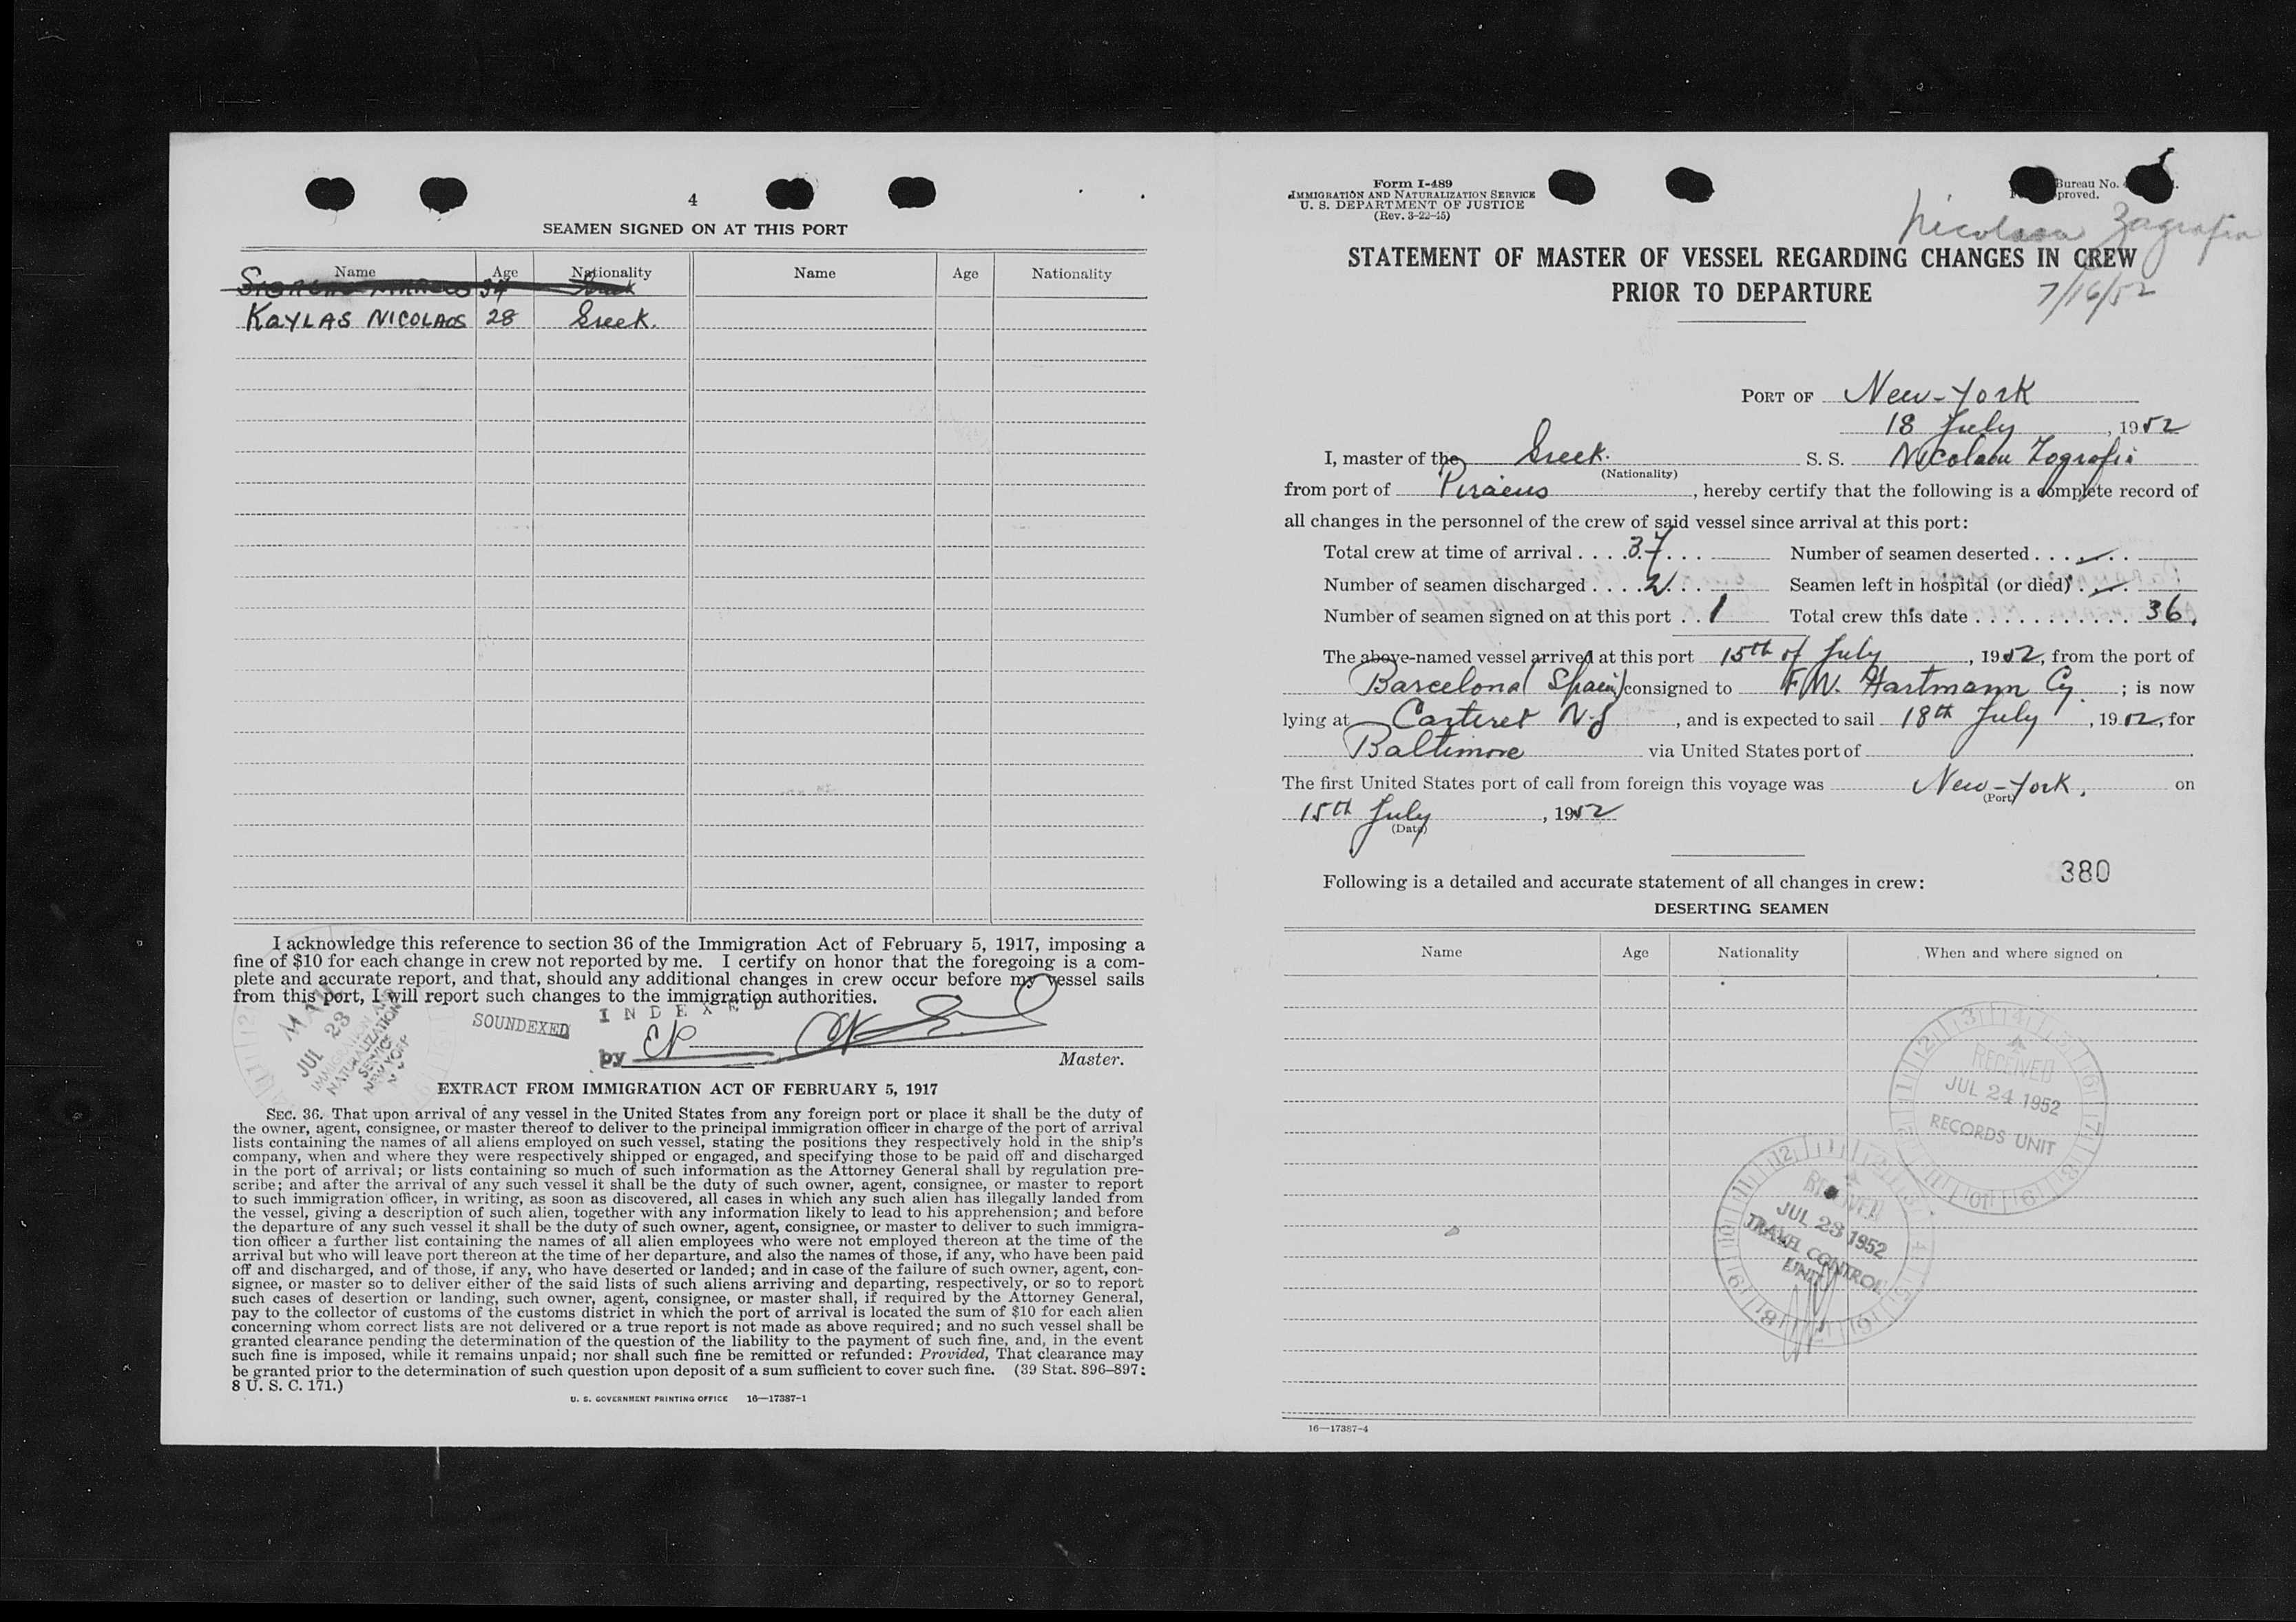 4
SEAMEN SIGNED ON AT THIS PORT
Name Age Nationality Name Age Nationality
34 Greek
KAYLAS NICOLAOS 28 Greek.
I acknowledge this reference to section 36 of the Immigration Act of February 5, 1917, imposing a
fine of $10 for each change in crew not reported by me. I certify on honor that the foregoing is a com-
plete and accurate report, and that, should any additional changes in crew occur before my vessel sails
from this port, I will report such changes to the immigration authorities.
MAIL
JUL 23
IMMIGRATION AND
NATURALIZATION
SERVICE
NEW YORK
N Y
SOUNDEXED
INDEXED
by
Master.
EXTRACT FROM IMMIGRATION ACT OF FEBRUARY 5, 1917
SEC. 36. That upon arrival of any vessel in the United States from any foreign port or place it shall be the duty of
the owner, agent, consignee, or master thereof to deliver to the principal immigration officer in charge of the port of arrival
lists containing the names of all aliens employed on such vessel, stating the positions they respectively hold in the ship's
company, when and where they were respectively shipped or engaged, and specifying those to be paid off and discharged
in the port of arrival; or lists containing so much of such information as the Attorney General shall by regulation pre-
scribe; and after the arrival of any such vessel it shall be the duty of such owner, agent, consignee, or master to report
to such immigration officer, in writing, as soon as discovered, all cases in which any such alien has illegally landed from
the vessel, giving a description of such alien, together with any information likely to lead to his apprehension; and before
the departure of any such vessel it shall be the duty of such owner, agent, consignee, or master to deliver to such immigra-
tion officer a further list containing the names of all alien employees who were not employed thereon at the time of the
arrival but who will leave port thereon at the time of her departure, and also the names of those, if any, who have been paid
off and discharged, and of those, if any, who have deserted or landed; and in case of the failure of such owner, agent, con-
signee, or master so to deliver either of the said lists of such aliens arriving and departing, respectively, or so to report
such cases of desertion or landing, such owner, agent, consignee, or master shall, if required by the Attorney General,
pay to the collector of customs of the customs district in which the port of arrival is located the sum of $10 for each alien
concerning whom correct lists are not delivered or a true report is not made as above required; and no such vessel shall be
granted clearance pending the determination of the question of the liability to the payment of such fine, and, in the event
such fine is imposed, while it remains unpaid; nor shall such fine be remitted or refunded: Provided, That clearance may
be granted prior to the determination of such question upon deposit of a sum sufficient to cover such fine. (39 Stat. 896–897;
8 U. S. C. 171.)
U. S. GOVERNMENT PRINTING OFFICE 16—17387-1
Form I-489
IMMIGRATION AND NATURALIZATION SERVICE
U. S. DEPARTMENT OF JUSTICE
(Rev. 3-22-45)
Bureau No.
proved.
Nicolaou Zografia
7/16/52
STATEMENT OF MASTER OF VESSEL REGARDING CHANGES IN CREW
PRIOR TO DEPARTURE
PORT OF New-York
18 July, 1952
I, master of the Greek. S. S. Nicolaou Zografia
(Nationality)
from port of Piraeus, hereby certify that the following is a complete record of
all changes in the personnel of the crew of said vessel since arrival at this port:
Total crew at time of arrival .... 37 ... Number of seamen deserted ....
Number of seamen discharged .... 2 ... Seamen left in hospital (or died) ...
Number of seamen signed on at this port .. 1 Total crew this date ........... 36.
The above-named vessel arrived at this port 15th of July, 1952, from the port of
Barcelona (Spain) consigned to F.W. Hartmann Cy.; is now
lying at Carteret N-J, and is expected to sail 18th July, 1952, for
Baltimore via United States port of
The first United States port of call from foreign this voyage was New-York. on
(Port)
15th July, 1952
(Date)
Following is a detailed and accurate statement of all changes in crew:
380
DESERTING SEAMEN
Name Age Nationality When and where signed on
RECEIVED
JUL 24 1952
RECORDS UNIT
RECEIVED
JUL 23 1952
TRAVEL CONTROL
UNIT
16—17387-4